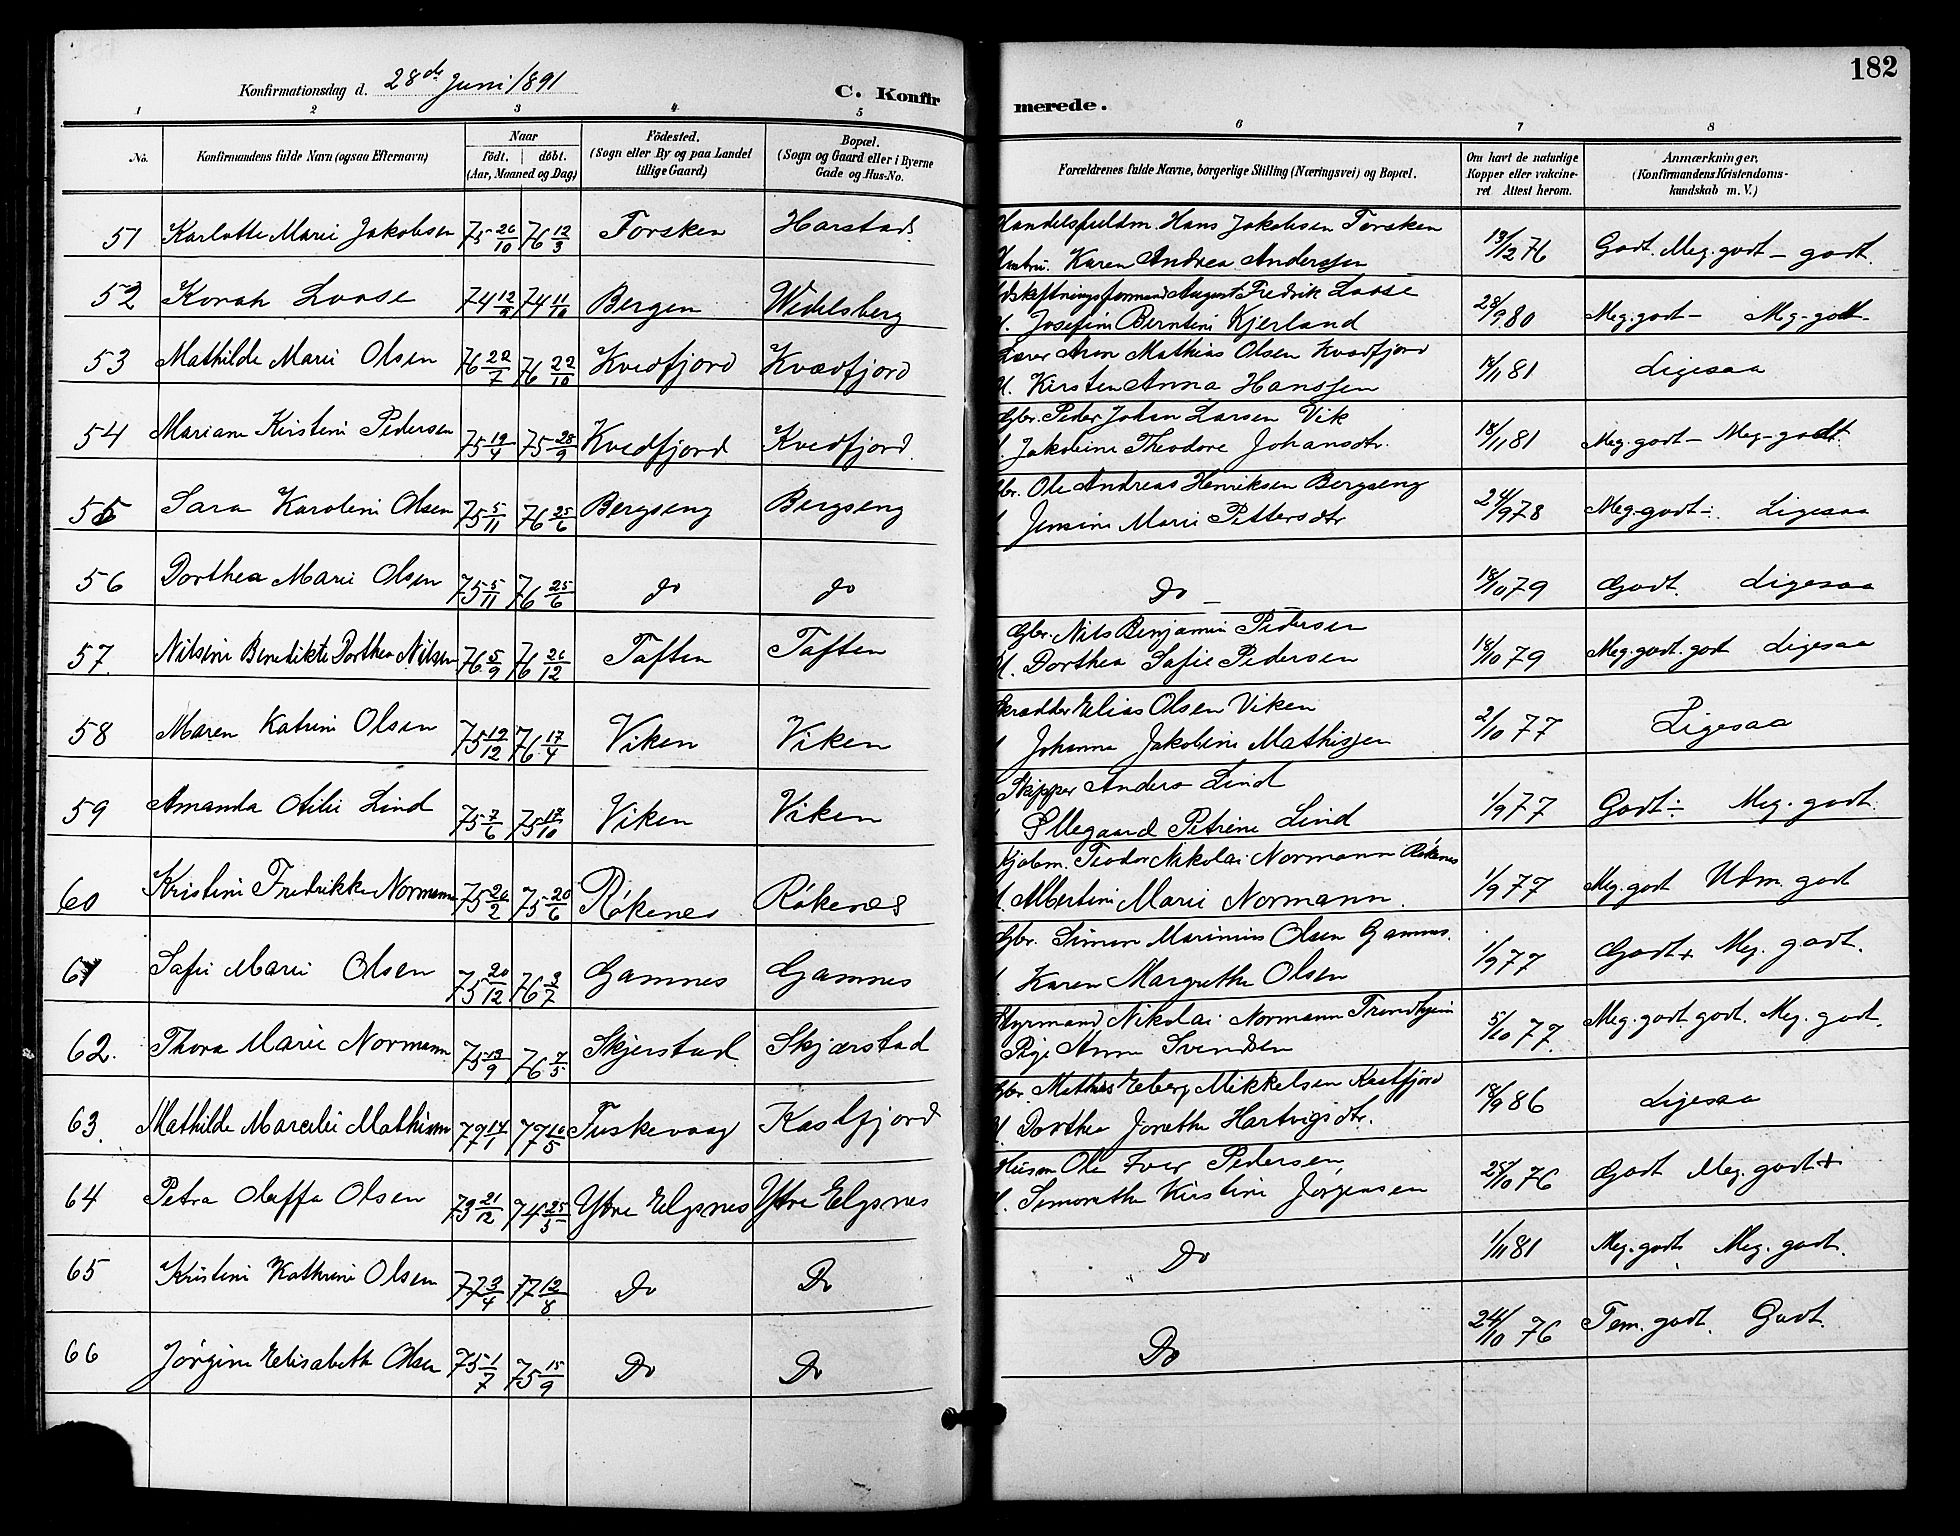 182
Konfirmationsdag d. 28de Juni 1891
C. Konfirmerede.
1 2 3 4 5 6 7 8
No. Konfirmandens fulde Navn (ogsaa Efternavn) Naar födt. döbt. (Aar, Maaned og Dag) Födested. (Sogn eller By og paa Landet tillige Gaard) Bopæl. (Sogn og Gaard eller i Byerne Gade og Hus-No. Forældrenes fulde Navne, borgerlige Stilling (Næringsvei) og Bopæl. Om havt de naturlige Kopper eller vakcineret. Attest herom. Anmærkninger, (Konfirmandens Kristendomskundskab m. V.)
51 Karlotte Marie Jakobsen 75 26/10 76 12/3 Torsken Harstad. Handelsfuldm. Hans Jakobsen Torsken
Karen Andrea Anderssen 13/12 76 Godt. Meg. godt - godt.
52 Korah Loose 74 74 11/10 Bergen Widelsberg August Fredrik Loose
H. Josefine Berntine Kjerland 28/9 80 Meg. godt - Meg-godt-
53 Mathilde Marie Olsen 76 22/7 76 22/10 Kvedfjord Kvædfjord Lærer Aron Mathias Olsen Kvædfjord
H. Kirsten Anna Hanssen 18/11 81 Ligesaa
54 Mariane Kirstine Pedersen 75 19/4 75 28/9 Kvedfjord Kvedfjord. Gbr. Peder Johan Larsen Vik
Jakobine Theodore Johansdtr. 18/11 81 Meg. godt - Meg - godt.
55 Sara Karoline Olsen 75 5/11 76 25/6 Bergseng Bergseng Gbr. Ole Andreas Henriksen Bergseng
Jensine Marie Pettersdtr 24/9 78 Meg. godt ÷ Ligesaa
56 Dorthea Marie Olsen 75 5/11 76 25/6 do do do 18/10 79 Godt. Ligesaa
57. Nilsine Benedikte Dorthea Nilsen 76 5/9 76 26/12 Taften Taften Gbr. Nils Benjamin Pedersen
H. Dorthea Sofie Pedersen 18/10 79 Meg. godt. god Ligesaa
58 Maren Katrine Olsen 75 12/12 76 17/4 Viken Viken Skrædder Elias Olsen Viken
Johanna Jakobine Mathissen 2/10 77 Ligesaa
59 Amanda Otilie Lind 75 7/6 75 17/10 Viken Viken Skipper Anders Lind
Ellegaard Petrine Lind 1/9 77 Godt ÷ Meg. godt.
60 Kristine Fredrikke Normann 75 20/2 75 20/6 Røkenes Røkenes Kjøbm. Teodor Nikolai Normann Røkenes
H. Albertine Marie Normann. 1/9 77 Meg. godt Udm. godt
61 Sofie Marie Olsen 75 20/12 76 2/7 Gamnes Gamnes Gbr. Simon Marinius Olsen Gamnes.
Karen Margrethe Olsen 1/9 77 Godt + Meg. godt.
62. Thora Marie Normann 75 19/9 76 7/5 Skjerstad Skjærstad Styrmand Nikolai Normann Trondhjem
Pige Anna Svendsen 5/10 77. Meg. godt. godt. Meg. godt.
63. Mathilde Marcelie Mathissen 77 14/1 77 10/5 Tuskevaag Kastfjord Gbr. Mathis Eberg Mikkelsen Kastfjord
H. Dorthea Jonetha Hartvigsdtr. 18/9 86 Ligesaa
64 Petra Oleffa Olsen 73 21/12 74 25/5 Ytre Elgsnes Ytre Elgsnes Husm Ole Iver Pedersen,
H. Simonetha Kirstine Jørgensen 25/10 76 Godt Meg. godt +
65 Kristine Kathrine Olsen 77 3/4 77 12/8 Do Do Do 1/11 81 Meg. godt. Meg. godt.
66 Jørgine Elisabeth Olsen 75 1/7 75 15/9 Do Do Do 24/10 76 Tem. godt. Godt.